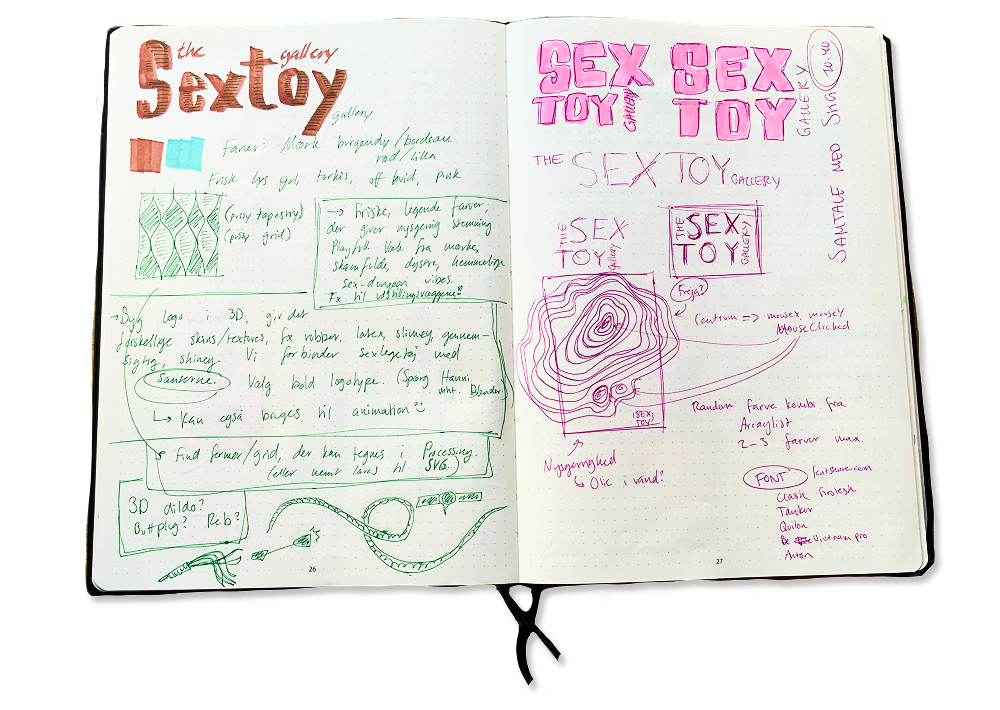 the
gallery
Sextoy
gallery
Farver: Mørk burgendy/bordeaux
rød/lilla
Frisk lys gul, turkis, off hvid, pink
(pussy tapestry)
(pussy grid)
→ Friske, legende farver,
der giver nysgerrig stemning
Playfull væk fra mørke,
skamfulde, dystre, hemmelige
sex-dungeon vibes.
Fx til udstillingsvæggene
→ Byg logo i 3D, gir det
forskellige skins/textures, fx rubber, latex, slimey, gennem-
sigtig, shiney. Vi forbinder sexlegetøj med
Sanserne. Valg bold logotype. (Spørg Hanni
mht. Blender)
↳ Kan også bruges til animation
Find former/grid, der kan tegnes i Processing
(eller nemt laves til SVG.)
3D dildo?
Buttplug? Reb?
26
SEX
TOY
GALLERY
SEX
TOY
GALLERY
10.40
SAMTALE MED
THE SEX TOY GALLERY
THE SEX
TOY gallery
THE SEX
TOY GALLERY
Freja?
Centrum => mousex, mousey
MouseClicked
SEX
TOY
Random farve kombi fra
Arraylist
2-3 farver max.
Nysgerrighed
↳ Olie i vand?
FONT fontshare.com
Clash Grotesk
Tanker
Quilon
Be Vietnam pro
Anton
27